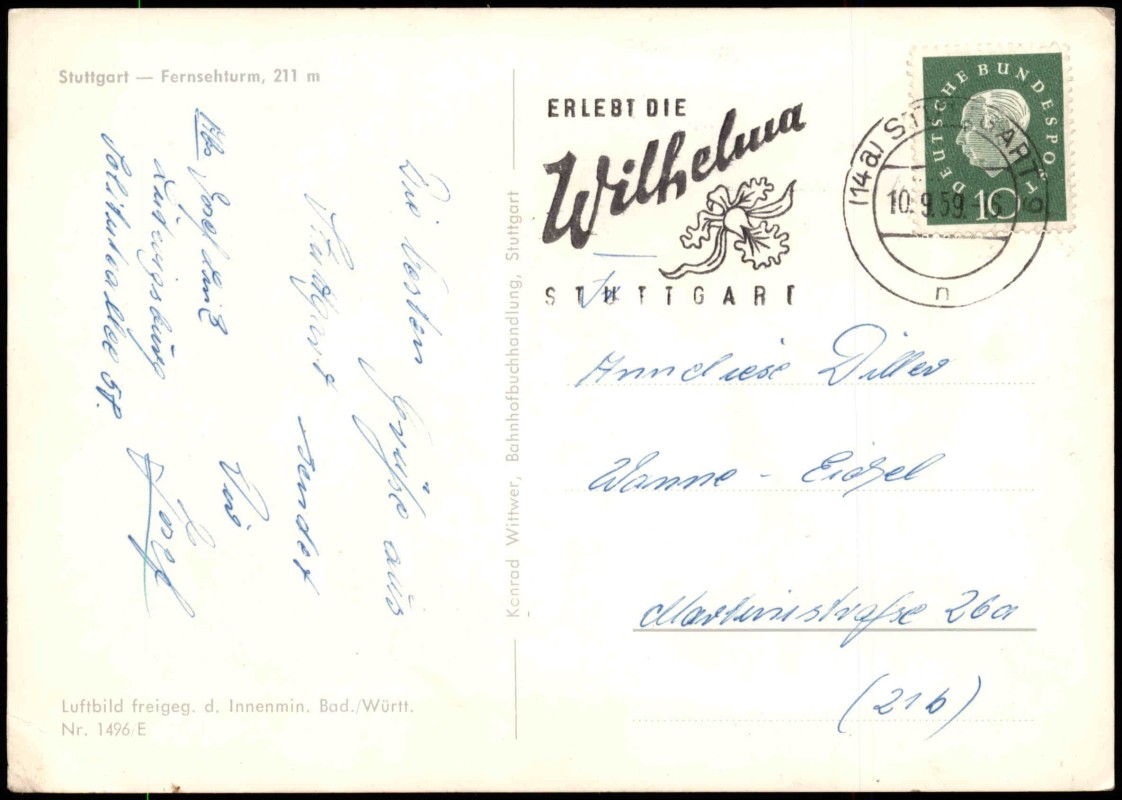 Stuttgart — Fernsehturm, 211 m
Abs. Josef
Ludwigsburg
Solitudeallee 59.
Die besten Grüße aus
Stuttgart sendet
Dir
Josef
Luftbild freigeg. d. Innenmin. Bad./Württ.
Nr. 1496/E
Konrad Wittwer, Bahnhofbuchhandlung, Stuttgart
ERLEBT DIE
Wilhelma
STUTTGART
(14a) STUTTGART 9
10.9.59.-16
n
DEUTSCHE BUNDESPOST
10
Fr.
Anneliese Diller
Wanne - Eickel
Martinistraße 26a
(21b)